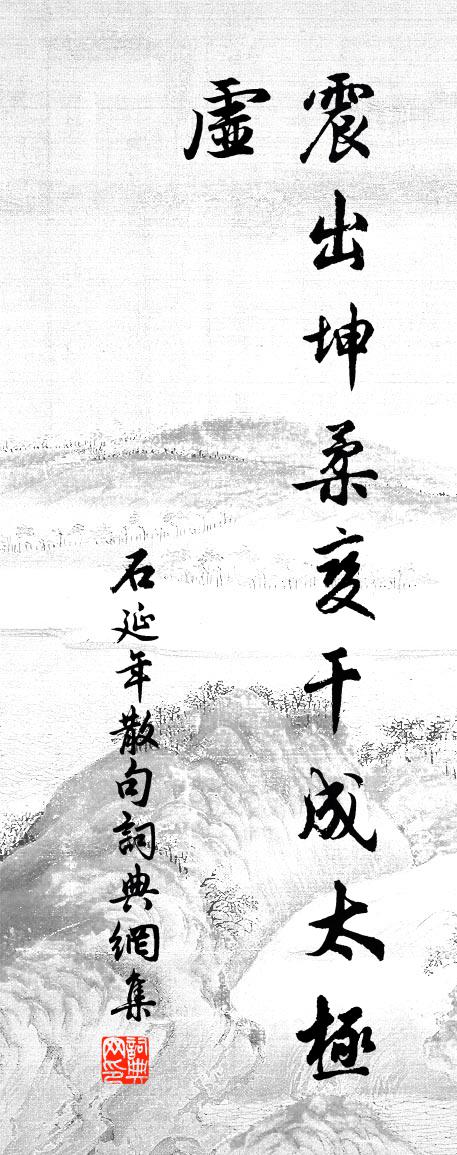 震出坤柔变干成太極
虛
石延年散句詞典網集
詞典网印